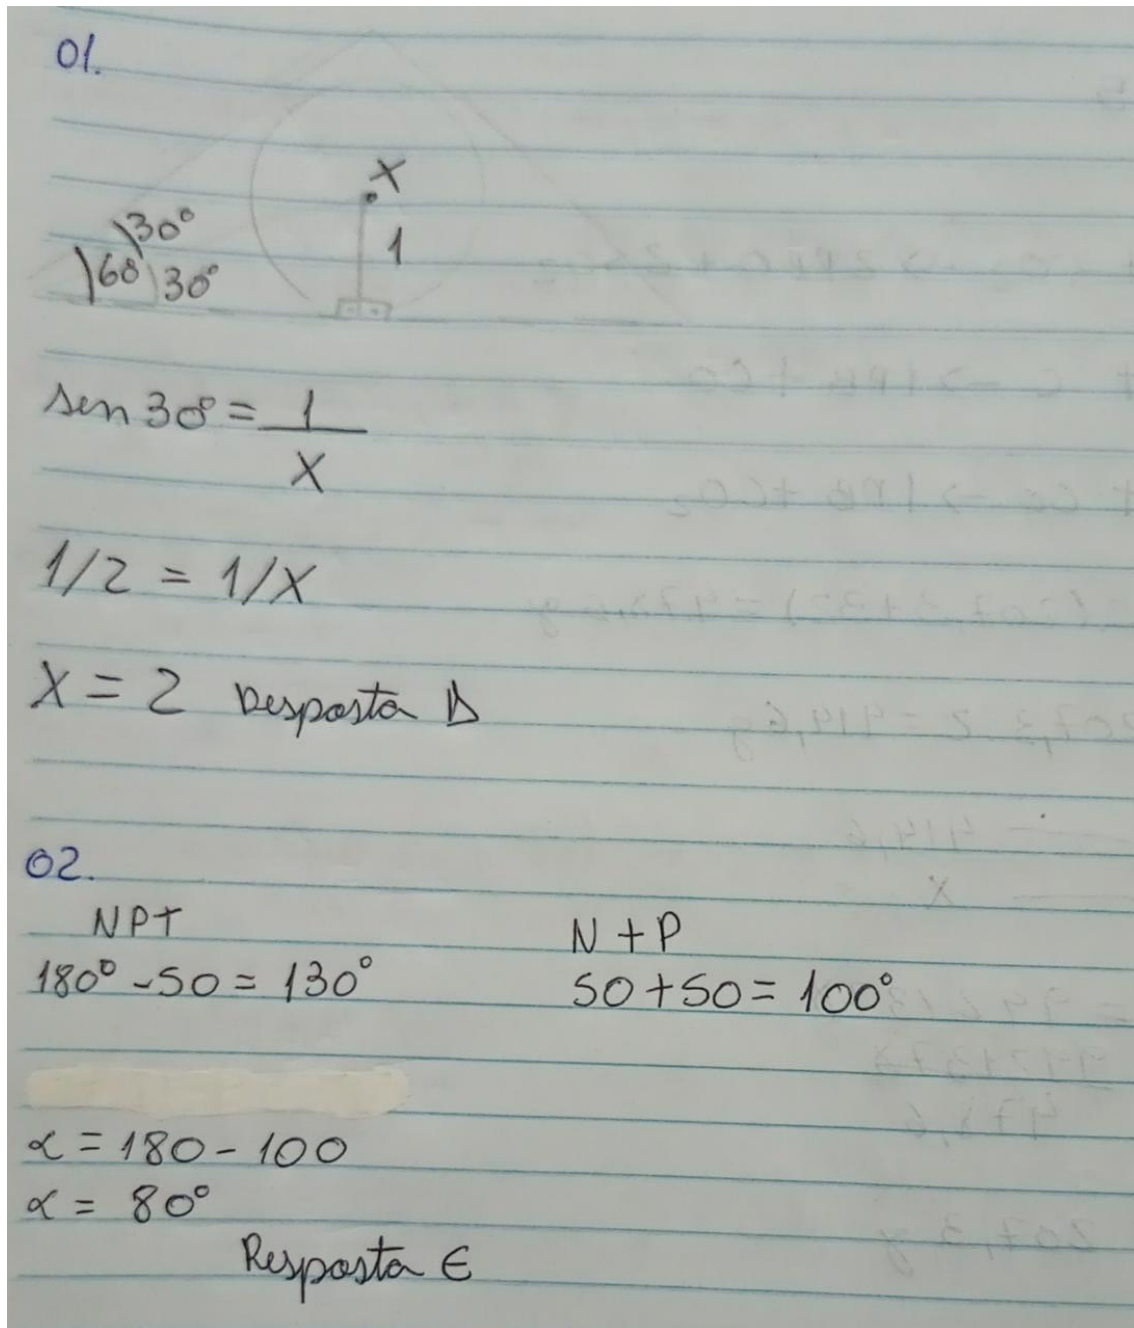 01.
X
1
30°
60 30°
sen 30° = 1
X
1/2 = 1/X
X = 2 Resposta D
02.
NPT N + P
180° - 50 = 130° 50 + 50 = 100°
α = 180 - 100
α = 80°
Resposta E